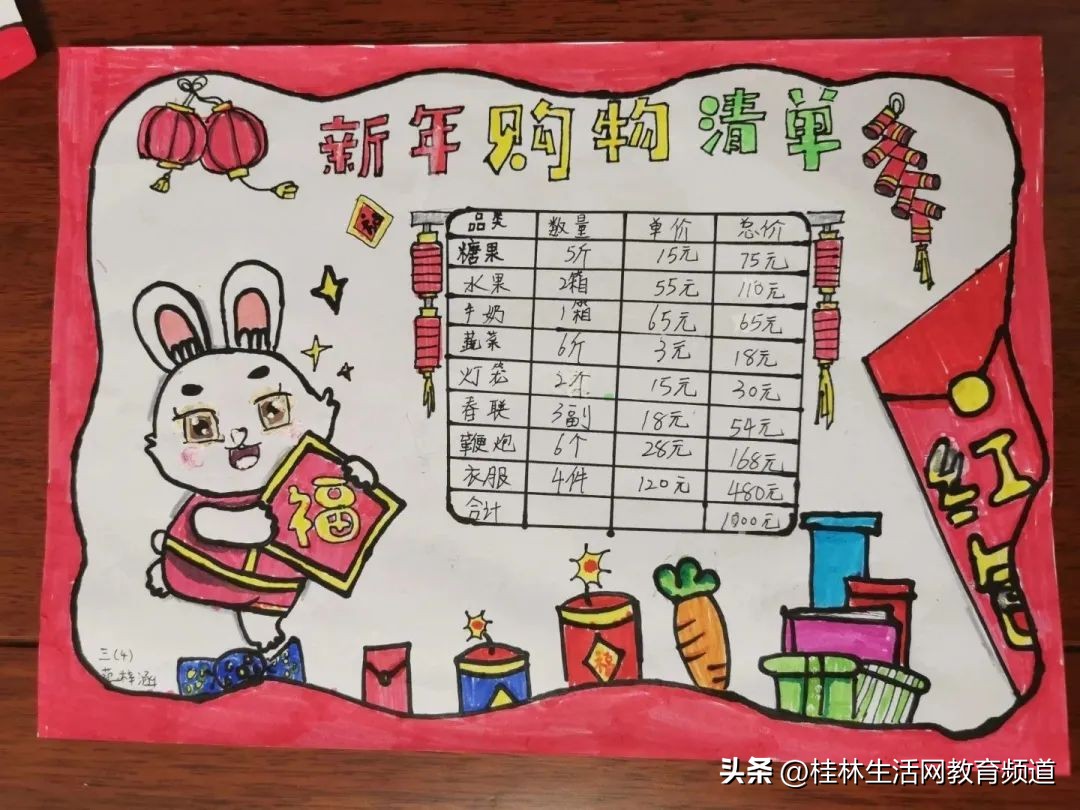 新年购物清单
品类 数量 单价 总价
糖果 5斤 15元 75元
水果 2箱 55元 110元
牛奶 1箱 65元 65元
蔬菜 6斤 3元 18元
灯笼 2个 15元 30元
春联 3副 18元 54元
鞭炮 6个 28元 168元
衣服 4件 120元 480元
合计 1000元
福
福
红包
三(4)
范梓涵
头条 @桂林生活网教育频道